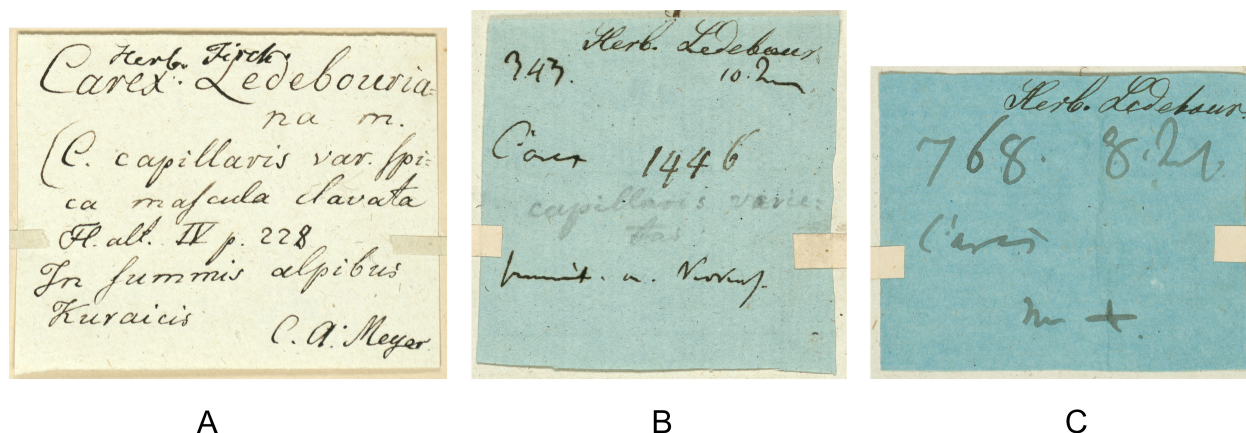 Herb. Fisch.
Carex. Ledebouria=
na m.
(C. capillaris var. spi=
ca mascula clavata
Fl. alt. IV p. 228
In summis alpibus
Kuraicis
C. A. Meyer
Herb. Ledebour.
343. 10.
Carex 1446
capillaris varie=
tas
Herb. Ledebour.
768. 8.
Carex
A
B
C